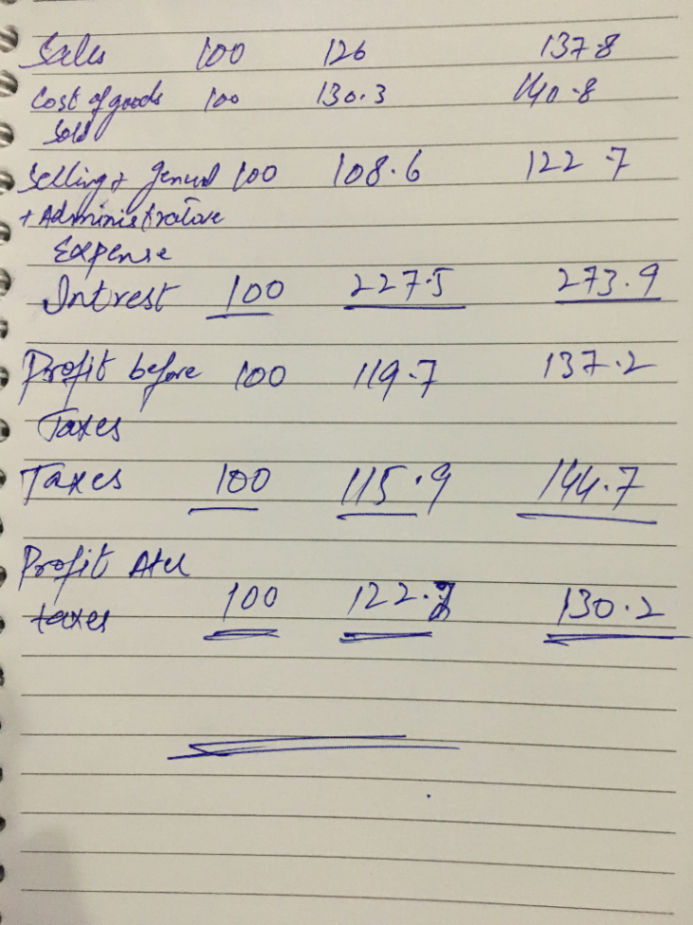 Sales 100 126 137.8
Cost of goods 100 130.3 140.8
Sold
Selling + General 100 108.6 122.7
+ Administrative
Expense
Intrest 100 227.5 273.9
Profit before 100 119.7 137.2
Taxes
Taxes 100 115.9 144.7
Profit
taxes 100 130.2